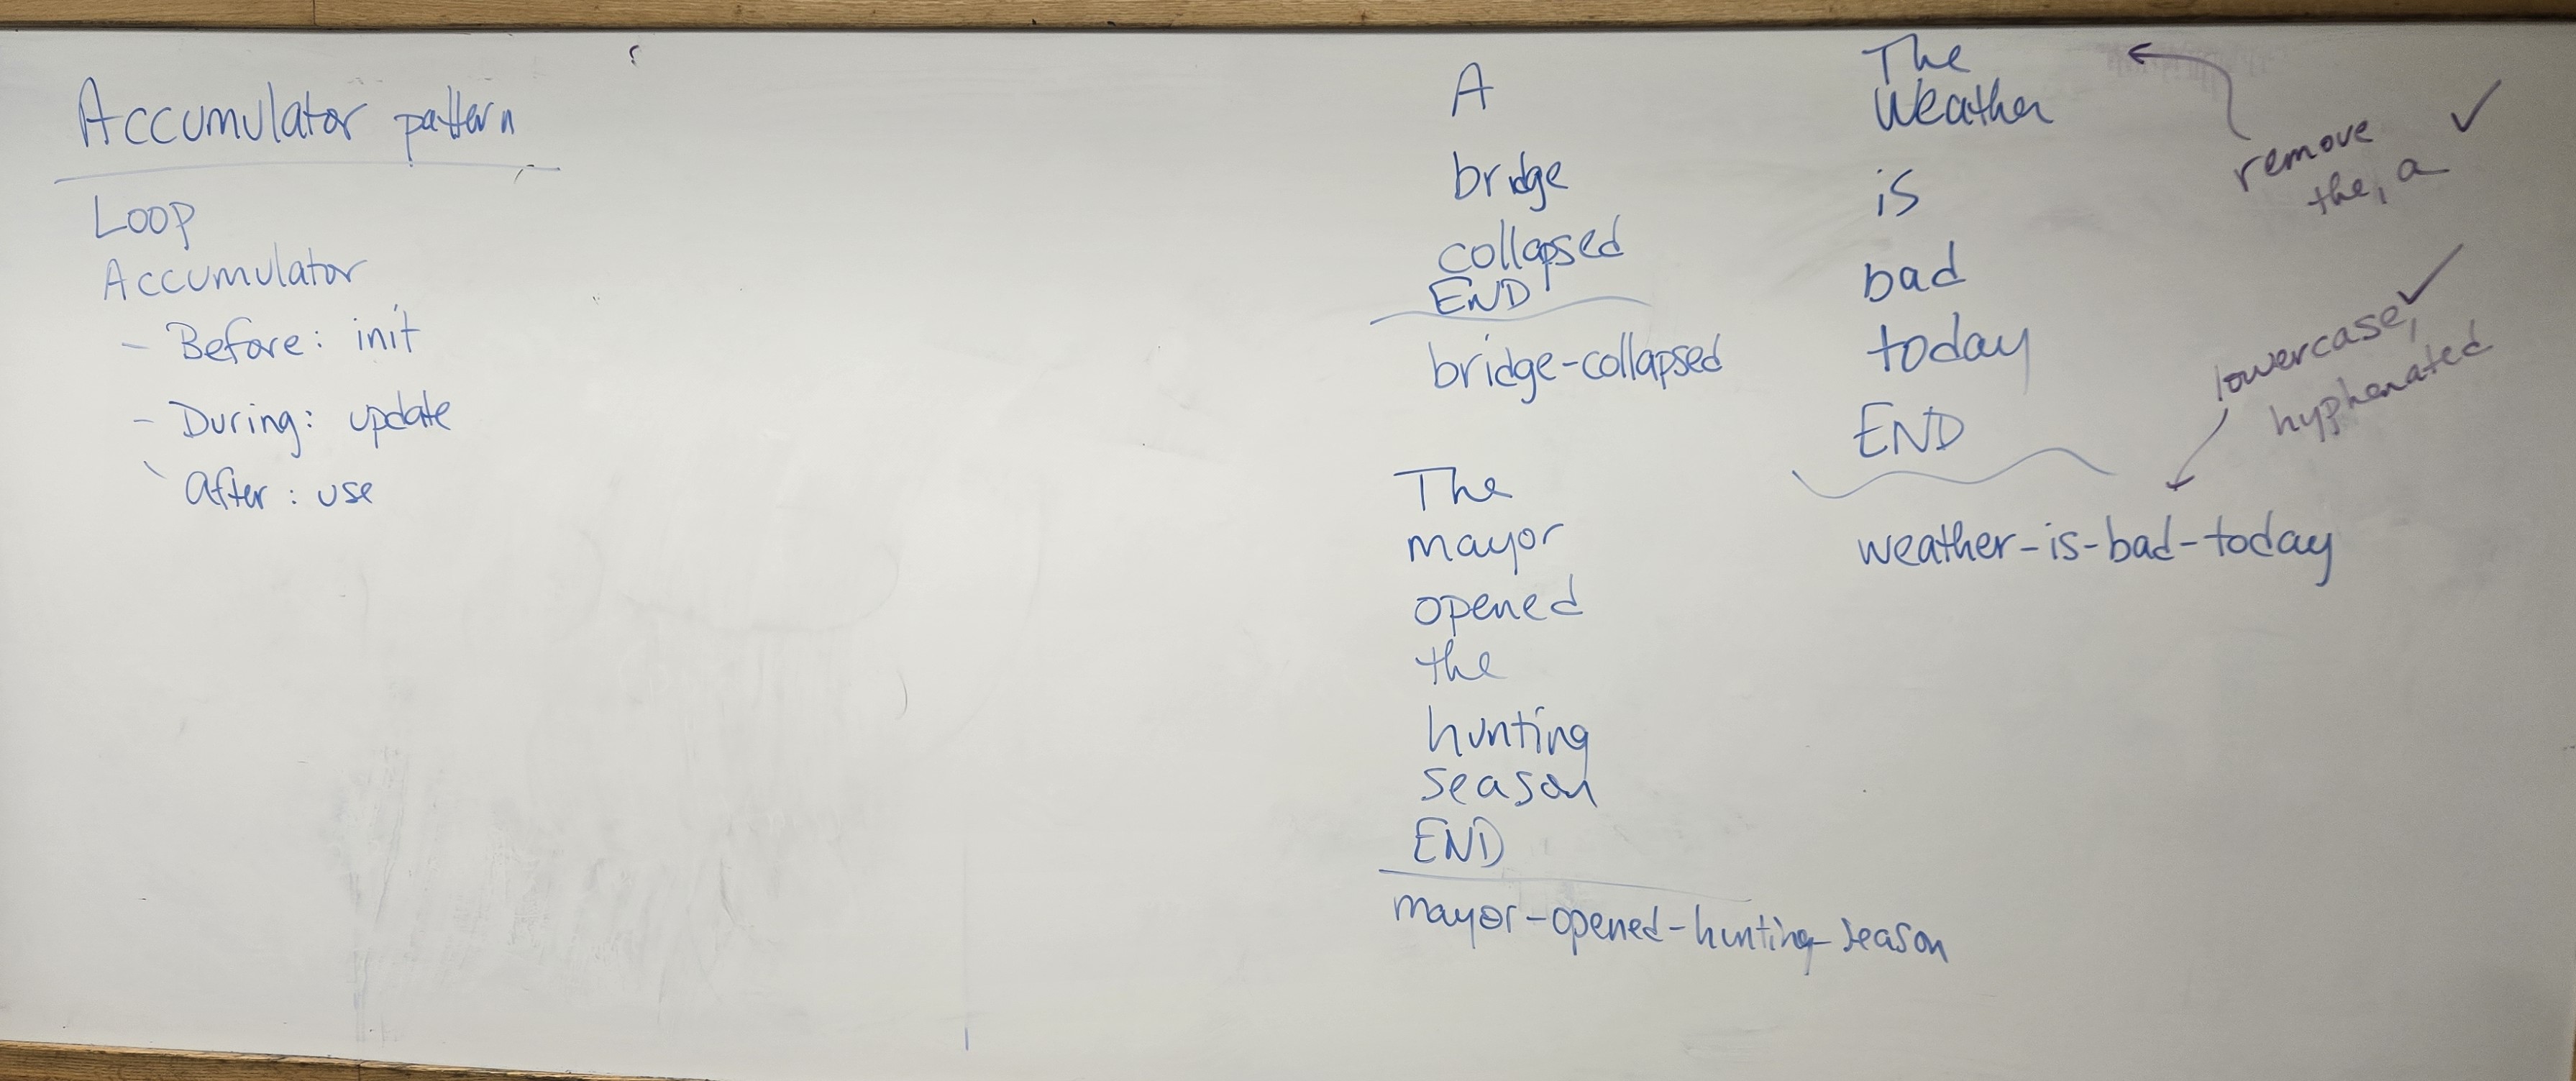 Accumulator pattern
Loop
Accumulator
- Before: init
- During: update
- After: use
A
bridge
collapsed
END
bridge-collapsed
The
mayor
opened
the
hunting
season
END
mayor-opened-hunting-season
The
Weather
is
bad
today
END
weather-is-bad-today
remove
the, a ✓
lowercase, ✓
hyphenated